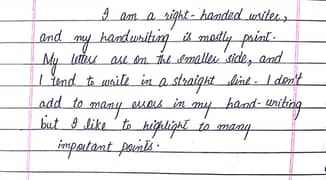 I am a right-handed writer,
and my handwriting is mostly print.
My letters are on the smaller side, and
I tend to write in a straight line. I don't
add to many errors in my hand-writing
but I like to highlight to many
important points.